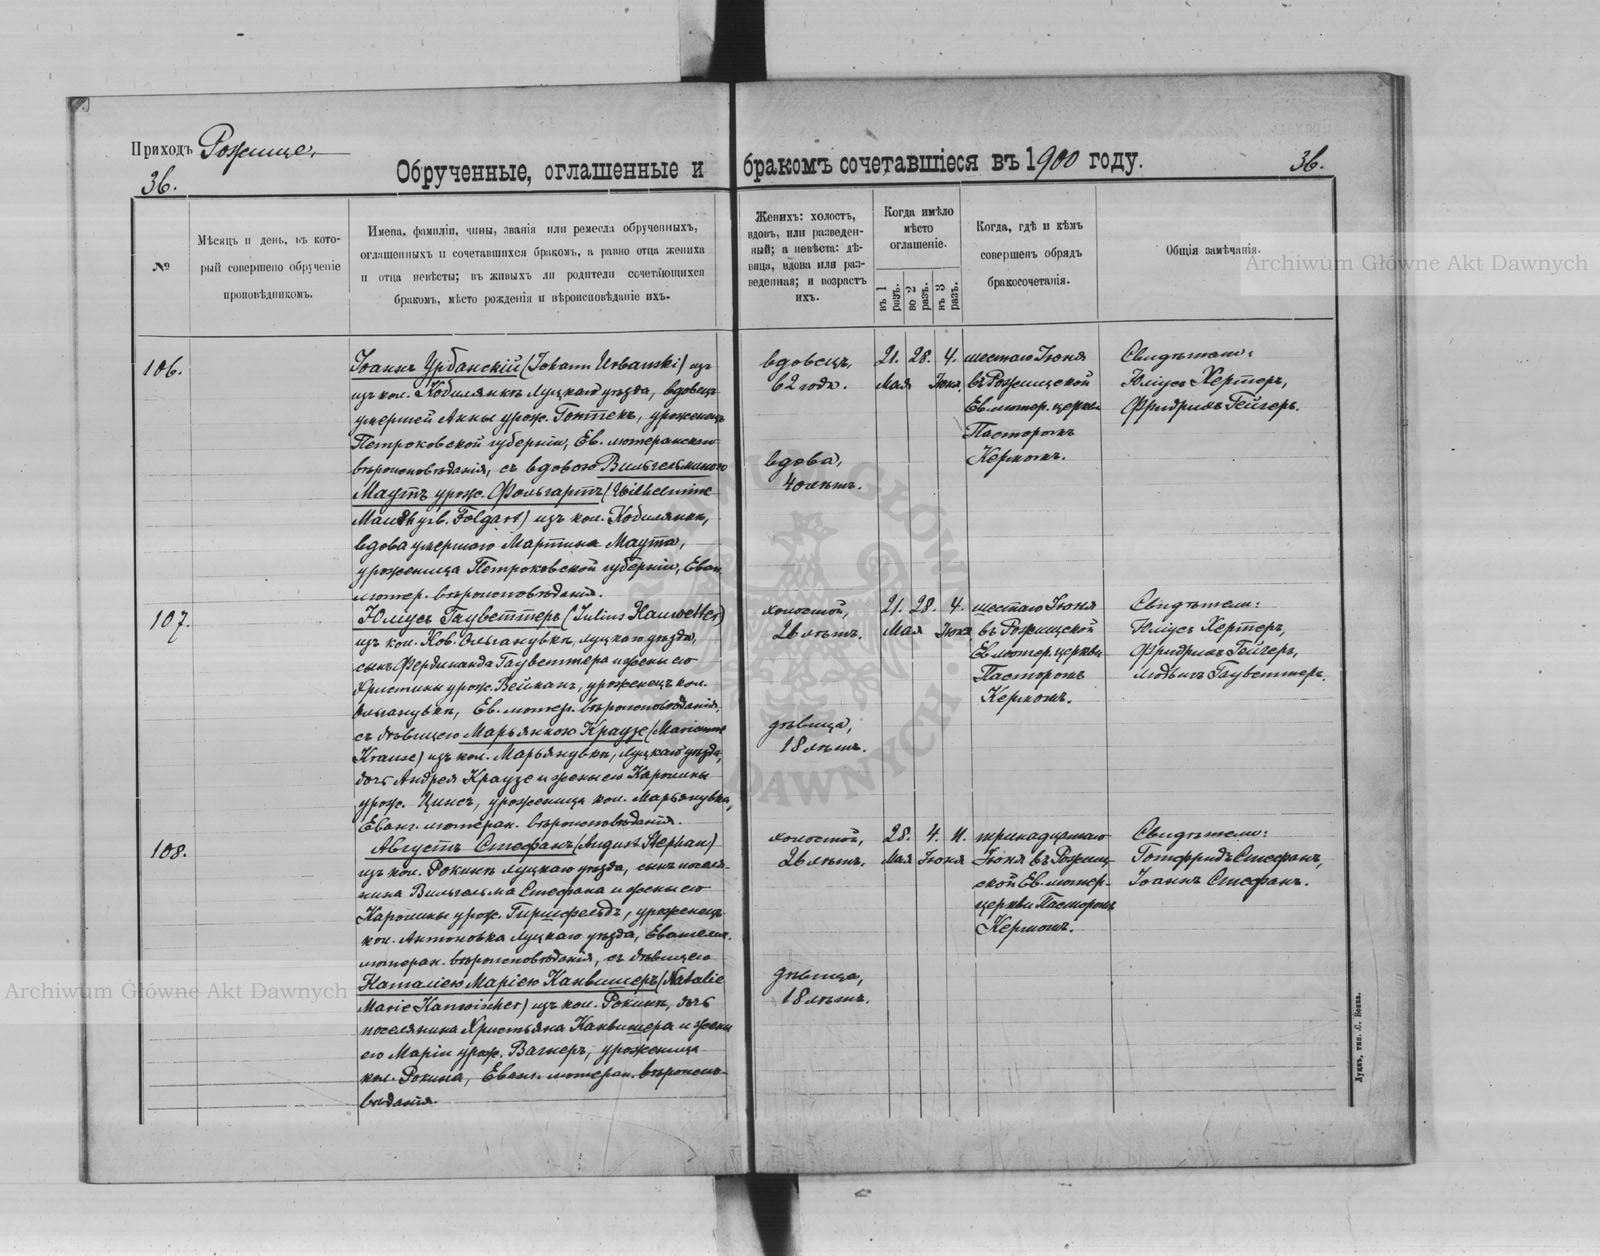 Приходъ Рожище
36.
Обрученные, оглашенные и бракомъ сочетавшіеся въ 1900 году.
36.
№
Мѣсяцъ и день, въ кото-
рый совершено обрученіе
проповѣдникомъ.
Имена, фамиліи, чины, званія или ремесла обрученныхъ,
оглашенныхъ и сочетавшихся бракомъ, а равно отца жениха
и отца невѣсты; въ живыхъ ли родители сочетающихся
бракомъ, мѣсто рожденія и вѣроисповѣданіе ихъ.
Женихъ: холостъ,
вдовъ, или разведен-
ный; а невѣста: дѣ-
вица, вдова или раз-
веденная; и возрастъ
ихъ.
Когда имѣло
мѣсто
оглашеніе.
въ 1 разъ.
во 2 разъ.
въ 3 разъ.
Когда, гдѣ и кѣмъ
совершенъ обрядъ
бракосочетанія.
Общія замѣчанія.
106.
Іоаннъ Урбанскій (Johann Urbanski) изъ
изъ кол. Кобилянкъ Луцкаго уѣзда, вдовецъ
умершей Анны урож. Гонтекъ, уроженецъ
Петроковской губерніи, Ев. лютеранскаго
вѣроисповѣданія, съ вдовою Вильгельминою
Маутъ урож. Фольгартъ (Wilhelmine
Mauth geb. Folgart) изъ кол. Кобилянки,
вдова умершаго Мартина Маута,
уроженица Петроковской губерніи, Еван.
лютер. вѣроисповѣданія.
вдовецъ,
62 года.
вдова,
40 лѣтъ.
21. 28. 4.
Мая Іюня
шестаго Іюня
въ Рожищской
Ев. лютер. церкви
Пасторомъ
Кермомъ.
Свидѣтели:
Юліусъ Хертеръ,
Фридрихъ Гейгеръ.
107.
Юліусъ Гауветтеръ (Julius Hauwetter)
изъ кол. Нов. Ольганувкъ, Луцкаго уѣзда,
сынъ Фердинанда Гауветтера и жены его
Христины урож. Вейманъ, уроженецъ кол.
Ольганувкъ, Ев. лютер. вѣроисповѣданія,
съ дѣвицею Марьянною Краузе (Marianne
Krause) изъ кол. Марьянувкъ, Луцкаго уѣзда,
дочь Андрея Краузе и жены его Каролины
урож. Цинсъ, уроженица кол. Марьянувка,
Еванг. лютеран. вѣроисповѣданія.
холостой,
26 лѣтъ.
дѣвица,
18 лѣтъ.
21. 28. 4.
Мая Іюня
шестаго Іюня
въ Рожищской
Ев. лютер. церкви
Пасторомъ
Кермомъ.
Свидѣтели:
Юліусъ Хертеръ,
Фридрихъ Гейгеръ,
Людвигъ Гауветтеръ.
108.
Августъ Стефанъ (August Stephan)
изъ кол. Рокинъ Луцкаго уѣзда, сынъ поселя-
нина Вильгельма Стефана и жены его
Каролины урож. Гиршфельдъ, уроженецъ
кол. Антоновка Луцкаго уѣзда, Евангел.
лютеран. вѣроисповѣданія, съ дѣвицею
Наталіею Маріею Канвишеръ (Natalie
Marie Kanwischer) изъ кол. Рокинъ, дочь
поселянина Христьяна Канвишера и жены
его Маріи урож. Вагнеръ, уроженица
кол. Рокина, Еванг. лютеран. вѣроиспо-
вѣданія.
холостой,
26 лѣтъ.
дѣвица,
18 лѣтъ.
28. 4. 11.
Мая Іюня
тринадцатаго
Іюня въ Рожищ-
ской Ев. лютер.
церкви Пасторомъ
Кермомъ.
Свидѣтели:
Готфридъ Стефанъ,
Іоаннъ Стефанъ.
Archiwum Główne Akt Dawnych
Archiwum Główne Akt Dawnych